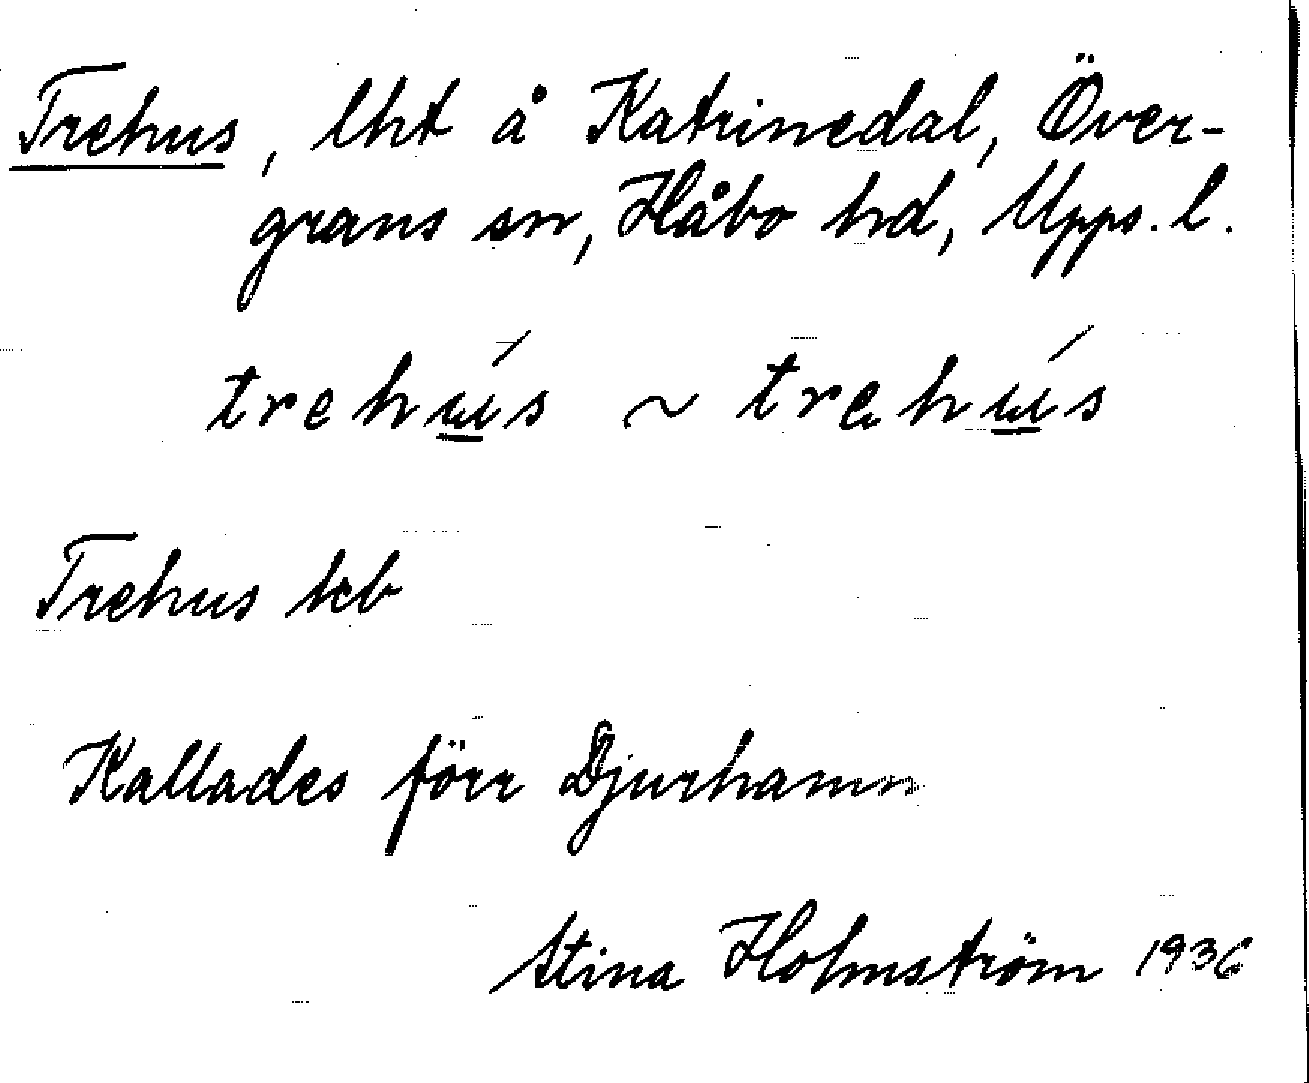 Trehus, lht å Katrinedal, Över-
grans sn, Håbo hd, Upps. l.
trehú̲s ~ trehú̲s
Trehus kb
Kallades förr Djurhamn
Stina Holmström 1936